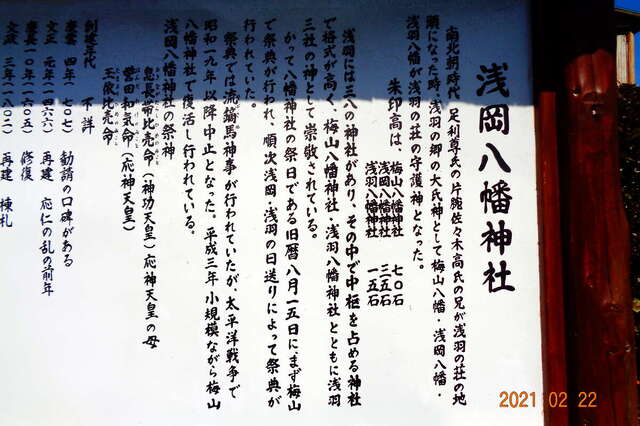 浅岡八幡神社
南北朝時代、足利尊氏の片腕佐々木高氏の兄が浅羽の荘の地
頭になった時、浅羽の郷の大氏神として梅山八幡・浅岡八幡・
浅羽八幡が浅羽の荘の守護神となった。
朱印高は、
梅山八幡神社 七〇石
浅岡八幡神社 三五石
浅羽八幡神社 一五石
浅羽には三八の神社があり、その中で中枢を占める神社
で格式が高く、梅山八幡神社、浅羽八幡神社とともに浅羽
三社の神として崇敬されている。
かって八幡神社の祭日である旧暦八月一五日にまず梅山
で祭典が行われ、順次浅岡・浅羽の日送りによって祭典が
行われていた。
祭典では流鏑馬神事が行われていたが、太平洋戦争で
昭和一九年以降中止となった。平成三年小規模ながら梅山
八幡神社で復活し行われている。
浅岡八幡神社の祭神
息長帯比売命(神功天皇)応神天皇の母
誉田和気命(応神天皇)
玉依比売命
創建年代 不詳
慶雲 四年(七〇七) 勧請の口碑がある
文正 元年(一四六六) 再建 応仁の乱の前年
慶長一〇年(一六〇五) 修復
文政 三年(一八〇二) 再建 棟札
2021 02 22